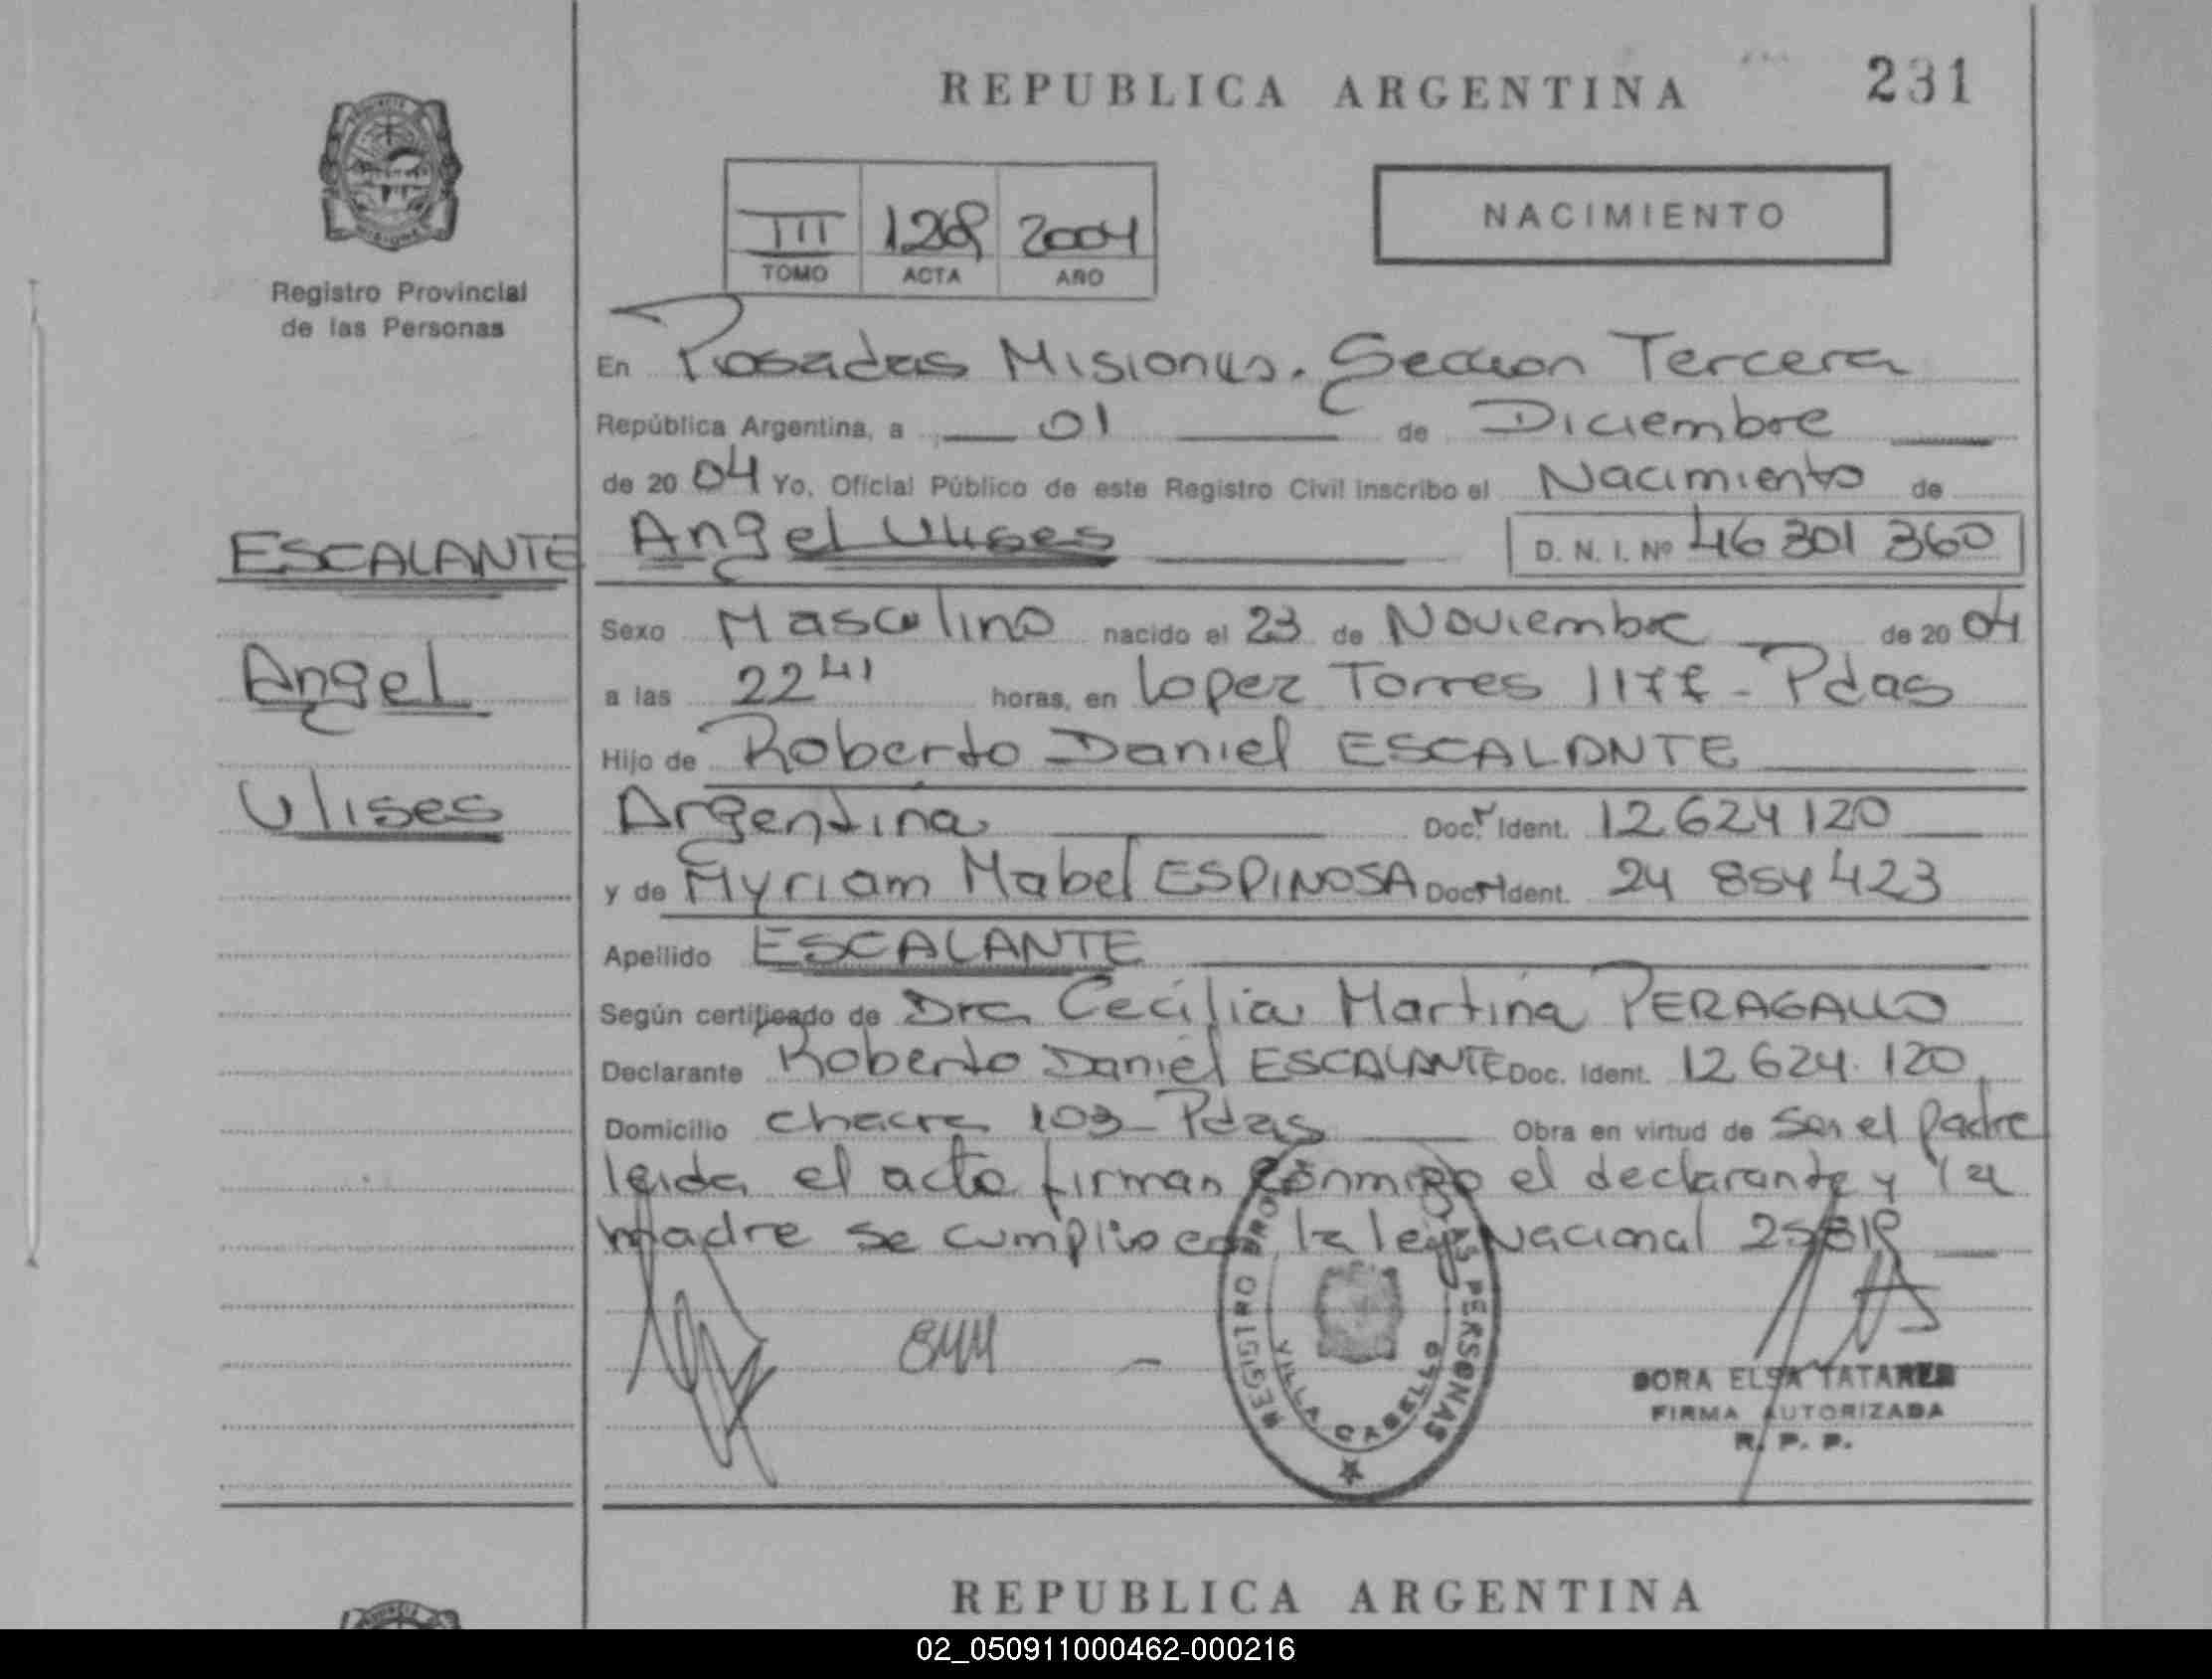 REPUBLICA ARGENTINA
231
Registro Provincial
de las Personas
III 1268 2004
TOMO ACTA AÑO
NACIMIENTO
En Posadas Misiones. Seccion Tercera
República Argentina, a 01 de Diciembre
de 20 04 Yo, Oficial Público de este Registro Civil inscribo el Nacimiento de
ESCALANTE
Angel
Ulises
Angel Ulises D. N. I. Nº 46 301 360
Sexo Masculino nacido el 23 de Noviembre de 20 04
a las 22 41 horas, en Lopez Torres Pdas
Hijo de Roberto Daniel ESCALANTE
Argentina Doc. Ident. 12.624 120
y de Myriam Mabel ESPINOSA Doc. Ident. 24 854 423
Apellido ESCALANTE
Según certificado de Dra Cecilia Martina PERAGALLO
Declarante Roberto Daniel ESCALANTE Doc. Ident. 12 624. 120
Domicilio Chacra 103 - Pdas Obra en virtud de Ser el padre
leida el acta firman conmigo el declarante y la
madre se cumplio con la ley Nacional
REGISTRO PERSONAS
VILLA CABELLO
DORA ELSA
FIRMA AUTORIZADA
R. P. P.
REPUBLICA ARGENTINA
02_050911000462-000216